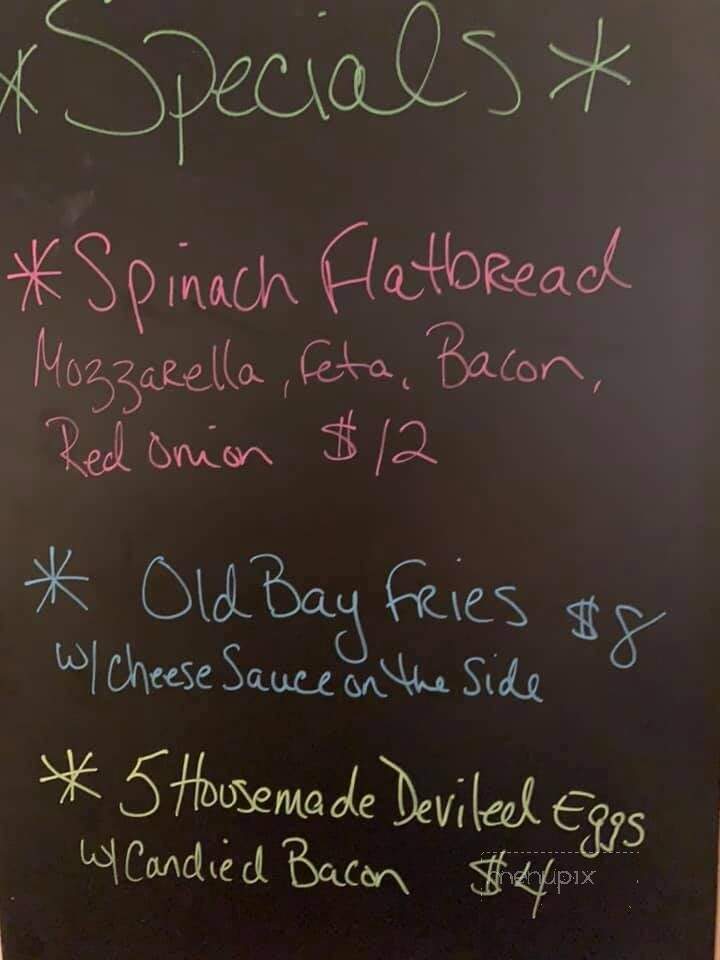 *Specials*
*Spinach Flatbread
Mozzarella, Feta, Bacon,
Red Onion $12
* Old Bay Fries $8
w/ Cheese Sauce on the Side
* 5 Housemade Deviled Eggs
w/ Candied Bacon $4
menupix